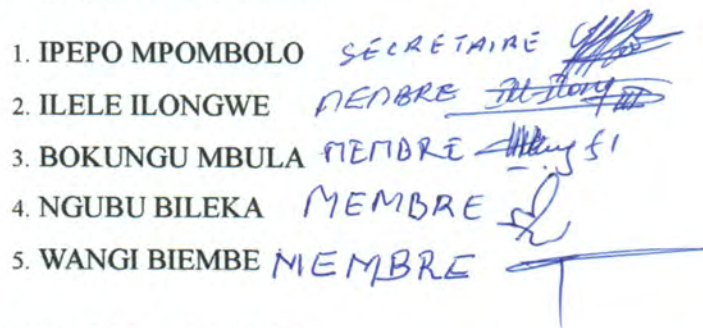 1. IPEPO MPOMBOLO SECRETAIRE
2. ILELE ILONGWE MEMBRE
3. BOKUNGU MBULA MEMBRE
4. NGUBU BILEKA MEMBRE
5. WANGI BIEMBE MEMBRE